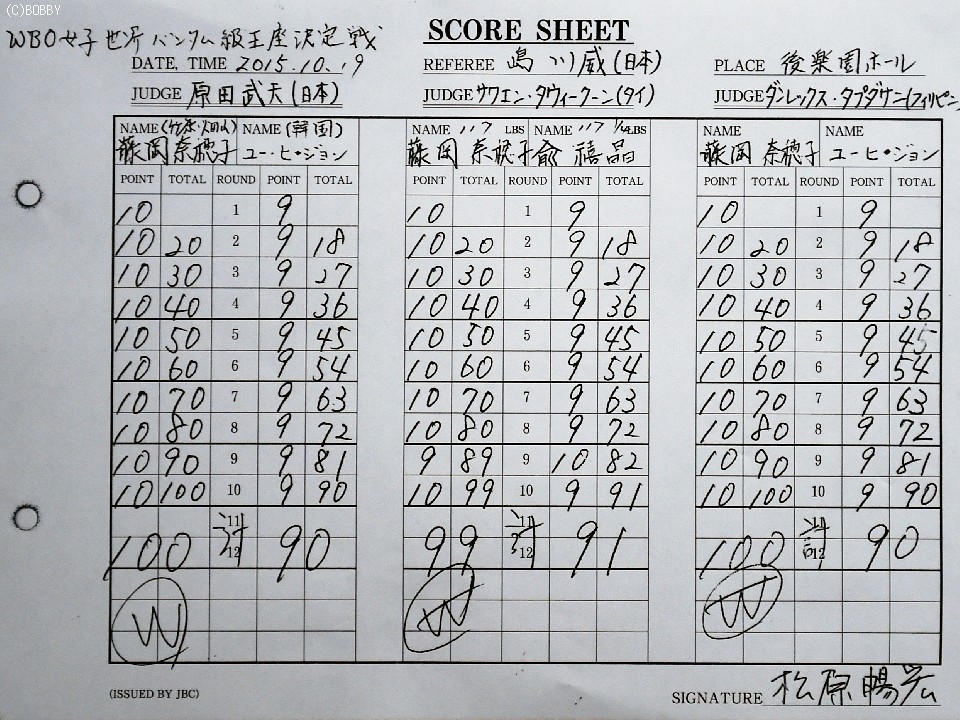 (C)BOBBY
WBO女子世界バンタム級王座決定戦
SCORE SHEET
DATE, TIME 2015.10.19 REFEREE 嶋川威(日本) PLACE 後楽園ホール
JUDGE 原田武夫(日本) JUDGE サウエン・タウィークーン(タイ) JUDGE ダンレックス・タプダサン(フィリピン)
NAME (竹原・畑山) NAME (韓国) NAME 117 LBS NAME 117 1/4 LBS NAME NAME
藤岡奈穂子 ユー・ヒ・ジョン 藤岡奈穂子 兪禧晶 藤岡奈穂子 ユー・ヒ・ジョン
POINT TOTAL ROUND POINT TOTAL POINT TOTAL ROUND POINT TOTAL POINT TOTAL ROUND POINT TOTAL
10 1 9 10 1 9 10 1 9
10 20 2 9 18 10 20 2 9 18 10 20 2 9 18
10 30 3 9 27 10 30 3 9 27 10 30 3 9 27
10 40 4 9 36 10 40 4 9 36 10 40 4 9 36
10 50 5 9 45 10 50 5 9 45 10 50 5 9 45
10 60 6 9 54 10 60 6 9 54 10 60 6 9 54
10 70 7 9 63 10 70 7 9 63 10 70 7 9 63
10 80 8 9 72 10 80 8 9 72 10 80 8 9 72
10 90 9 9 81 9 89 9 10 82 10 90 9 9 81
10 100 10 9 90 10 99 10 9 91 10 100 10 9 90
11 11 11
100 計 90 99 計 91 100 計 90
12 12 12
W W W
(ISSUED BY JBC) SIGNATURE 松原暢宏